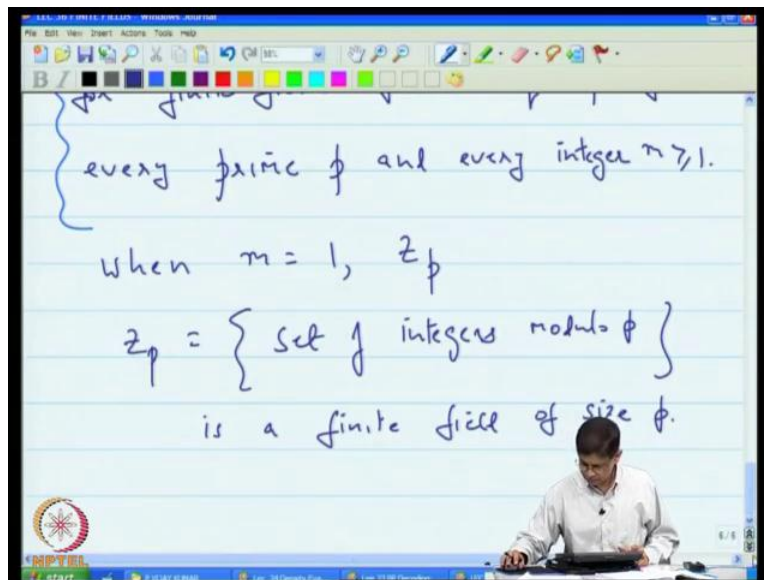 LEC 36 FINITE FIELDS - Windows Journal
File Edit View Insert Actions Tools Help
B I
for finite
every prime p and every integer m ≥ 1.
when m = 1, Z_p
Z_p = { set of integers modulo p }
is a finite field of size p.
6/6
NPTEL
start